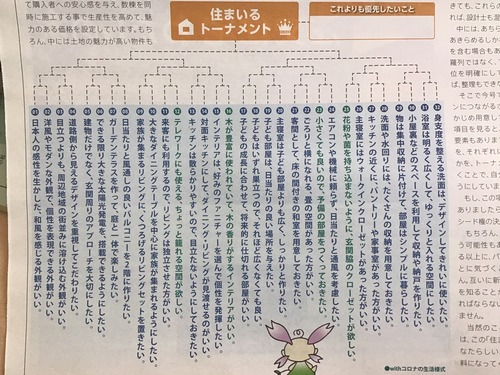 て購入者への安心感を与え、数棟を同
時に施工する事で生産性を高めて、魅
力のある価格を設定しています。もち
ろん、中には土地の魅力が高い物件も
住まいる
トーナメント
これよりも優先したいこと
01 日本人の感性を生かした和風を感じる外観がいい。
02 洋風やモダンな外観で、個性を表現できる外観がいい。
03 目立つよりも、周辺地域の街並みに溶け込む外観がいい。
04 道路側から見えるデザインを重視してこだわりたい。
05 建物だけでなく、玄関周りのアプローチを大切にしたい。
06 できる限り大きな太陽光発電を、搭載できるようにしたい。
07 ガーデンテラスを作って庭と一体で楽しみたい。
08 日当たりと風通しの良いバルコニーを2階に作りたい。
09 家族が集まる
10 大きなダイニングテーブルを中心に家族が集まれるようにしたい。
11 来客にも利用するので、リビングは独立させた方がいい。
12 テレワークにも使える、ちょっと籠れる空間が欲しい。
13 キッチンは散らかりやすいので、目立たないようにしておきたい。
14 対面キッチンにして、ダイニング・リビングが見渡せるのがいい。
15 インテリアは、好みのファニチャーを選んで個性を発揮したい。
16 木が豊富に使われていて、木の香りがするインテリアがいい。
17 子どもの成長に合わせて、将来的に仕切れる部屋がいい。
18 子どもはいずれ巣立つので、それほど広くなくても良い
19 子ども部屋は、日当たりの良い場所を与えたい。
20 主寝室は子ども部屋よりも広く、しっかりと作りたい。
21 客間として、床の間付きの和室を用意しておきたい。
22 ごろりと横になれる、畳の空間があった方がいい。
23 小さくても良いので、予備の部屋をつくっておきたい。
24 エアコンや機械に頼らず、日当たりと通風を考慮したい。
25 花粉や菌を持ち込まないように、玄関脇のクローゼットが欲しい。
26 主寝室にはウォークインクロゼットがあった方がいい。
27 キッチンの近くに、パントリーや家事室があった方がいい。
28 洗面や水回りには、たくさんの収納を用意しておきたい。
29 物は集中収納に片付けて、部屋はシンプルに暮らしたい。
30 小屋裏などのスペースを利用して収納や納戸を作りたい。
31 浴室は明るく広くして、ゆっくりと入れる空間にしたい。
32 身支度を整える洗面は、デザインしてきれいに使いたい。
●withコロナの生活様式